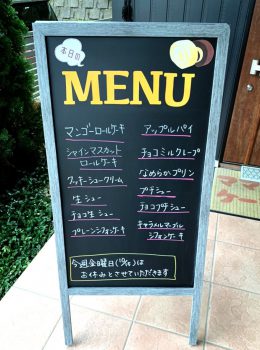 本日の
MENU
マンゴーロールケーキ
シャインマスカット
ロールケーキ
クッキーシュークリーム
生シュー
チョコ生シュー
プレーンシフォンケーキ
アップルパイ
チョコミルクレープ
なめらかプリン
プチシュー
チョコプチシュー
キャラメルマーブル
シフォンケーキ
今週金曜日()は
お休みとさせていただきます